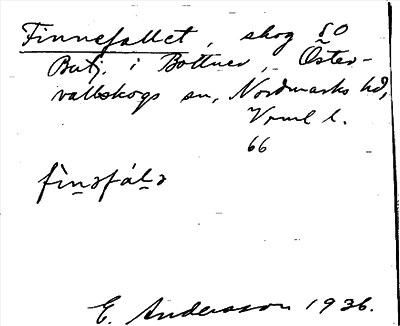 Finnefallet, skog SO
Butj. i Bottnev, Öster-
vallskogs sn, Nordmarks hd,
Vrml l.
66
fìnəfálə
E. Andersson 1936.